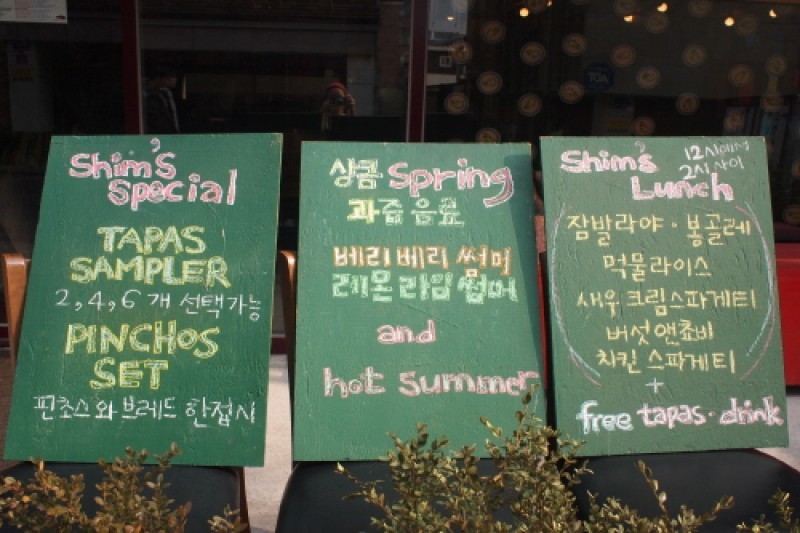 Shim's
Special
TAPAS
SAMPLER
2,4,6 개 선택가능
PINCHOS
SET
핀쵸스와 브레드 한접시
상콤 Spring
과즙음료
베리베리 썸머
레몬라임썸머
and
hot summer
Shim's
Lunch
12시에서
2시사이
잠발라야·봉골레
먹물라이스
새우크림스파게티
버섯앤쵸비
치킨 스파게티
+
free tapas·drink